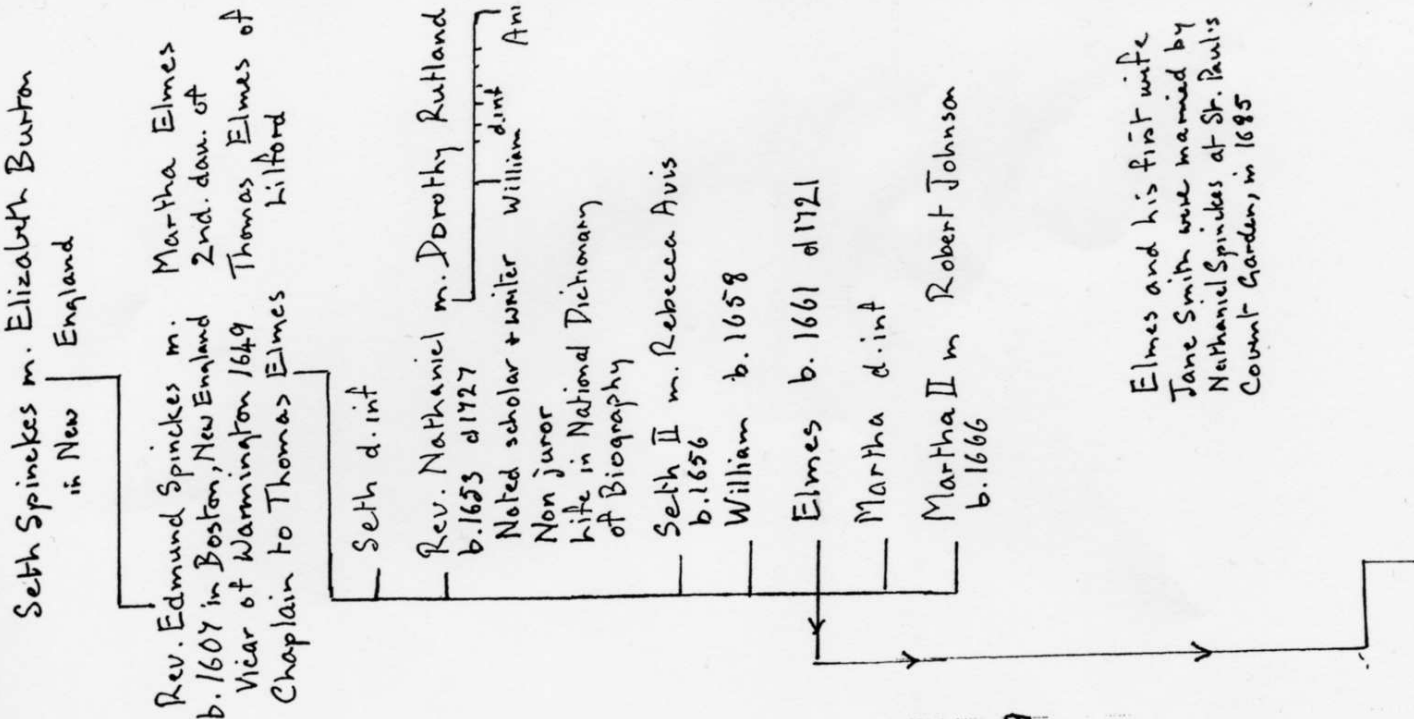 Seth Spinckes m. Elizabeth Burton
in New England
Rev. Edmund Spinckes m. Martha Elmes
b. 1607 in Boston, New England 2nd. dau. of
Vicar of Warmington 1649 Thomas Elmes of
Chaplain to Thomas Elmes Lilford
Seth d. inf
Rev. Nathaniel m. Dorothy Rutland
b. 1653 d 1727
Noted scholar + writer William d. inf Ann
Non juror
Life in National Dictionary
of Biography
Seth II m. Rebecca Avis
b. 1656
William b. 1658
Elmes b. 1661 d 1721
Martha d. inf
Martha II m Robert Johnson
b. 1666
Elmes and his first wife
Jane Smith were married by
Nathaniel Spinckes at St. Paul's
Covent Garden, in 1685